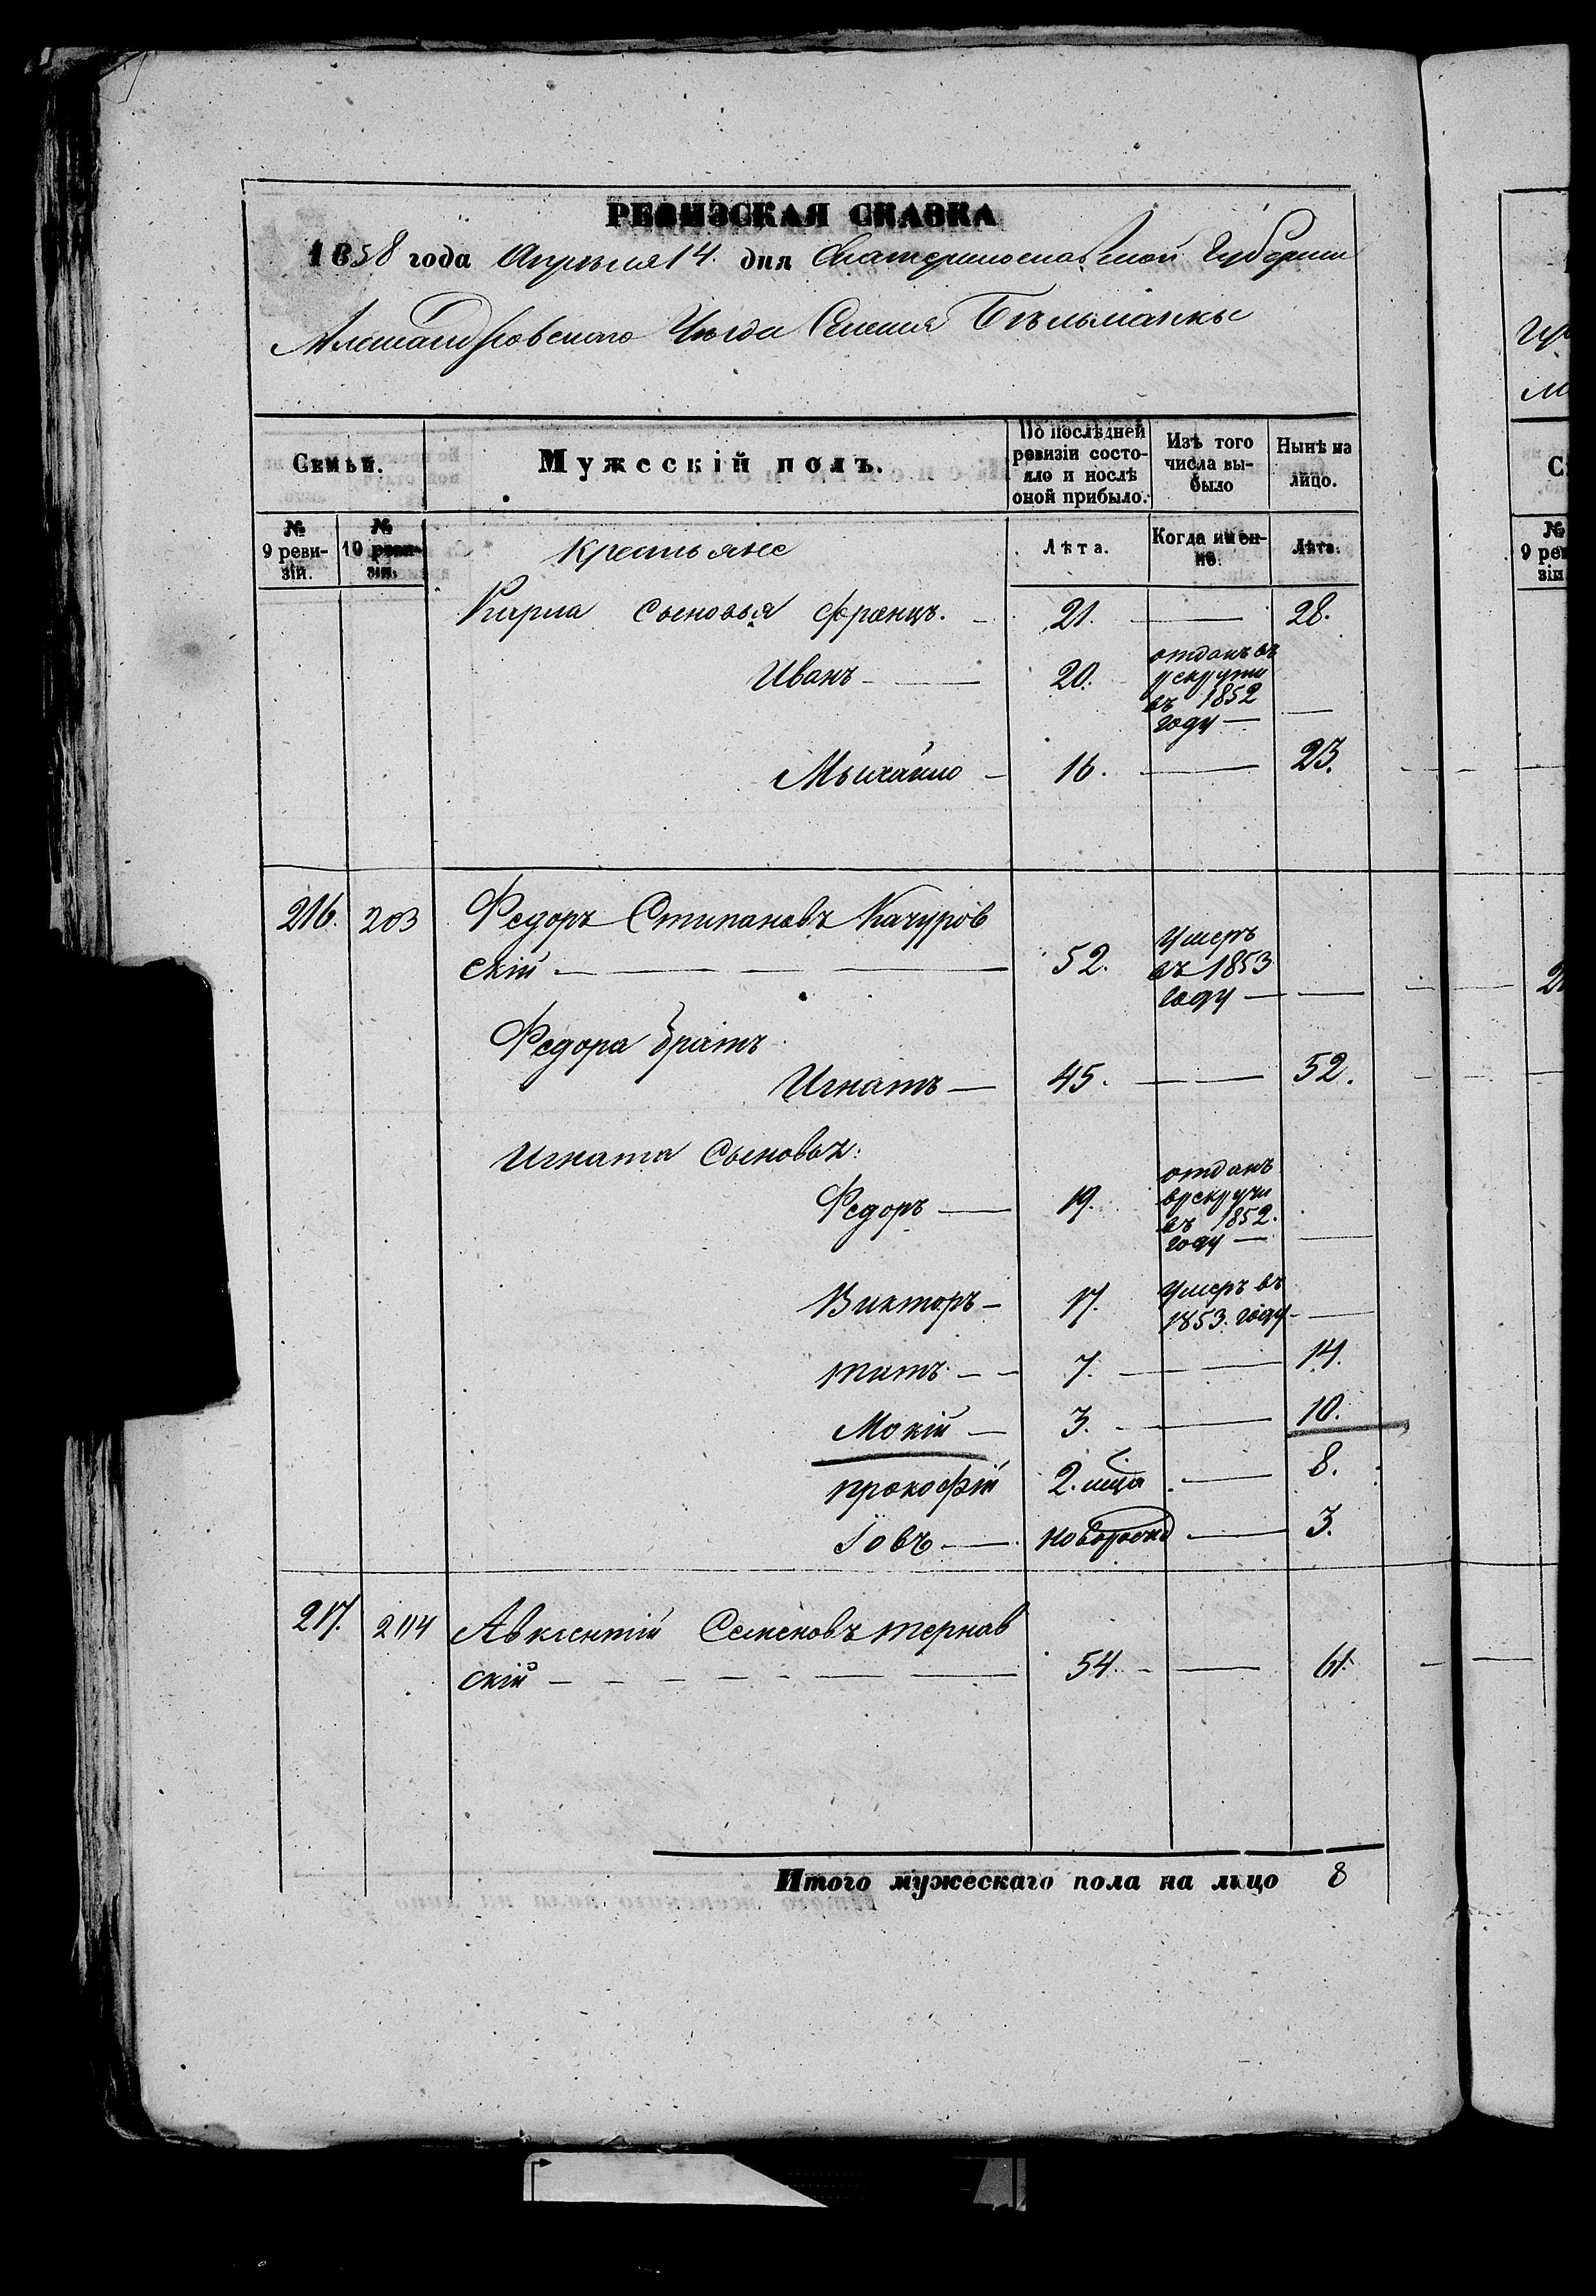 РЕВИЗСКАЯ СКАЗКА
1858 года Апрѣля 14. дня Екатеринославской Губернии
Александровского Уѣзда Селения Бѣльманки
Семьи. Мужескій полъ. По послѣдней ревизіи состояло и послѣ оной прибыло. Изъ того числа выбыло Нынѣ на лицо.
№ 9 ревизіи. № 10 ревизіи. крестьяне Лѣта. Когда именно. Лѣта.
Карла сыновья Францъ. 21. 28.
Иванъ 20. отданъ въ рекруты въ 1852 году
Мыхайло 16. 23.
216. 203 Федоръ Стипановъ Качуров
скій 52. умеръ въ 1853 году
Федора братъ
Игнатъ 45. 52.
Игната сыновья:
Федоръ 19. отданъ врекруты въ 1852. году
Викторъ 17. умеръ въ 1853. году
титъ 7. 14.
Мокій 3. 10.
прокофій 2. мца 8.
Іовъ новорожд 3.
217. 204 Авксентій Семеновъ тернав
скій 54. 61.
Итого мужескаго пола на лицо 8
9 реви-
зіи